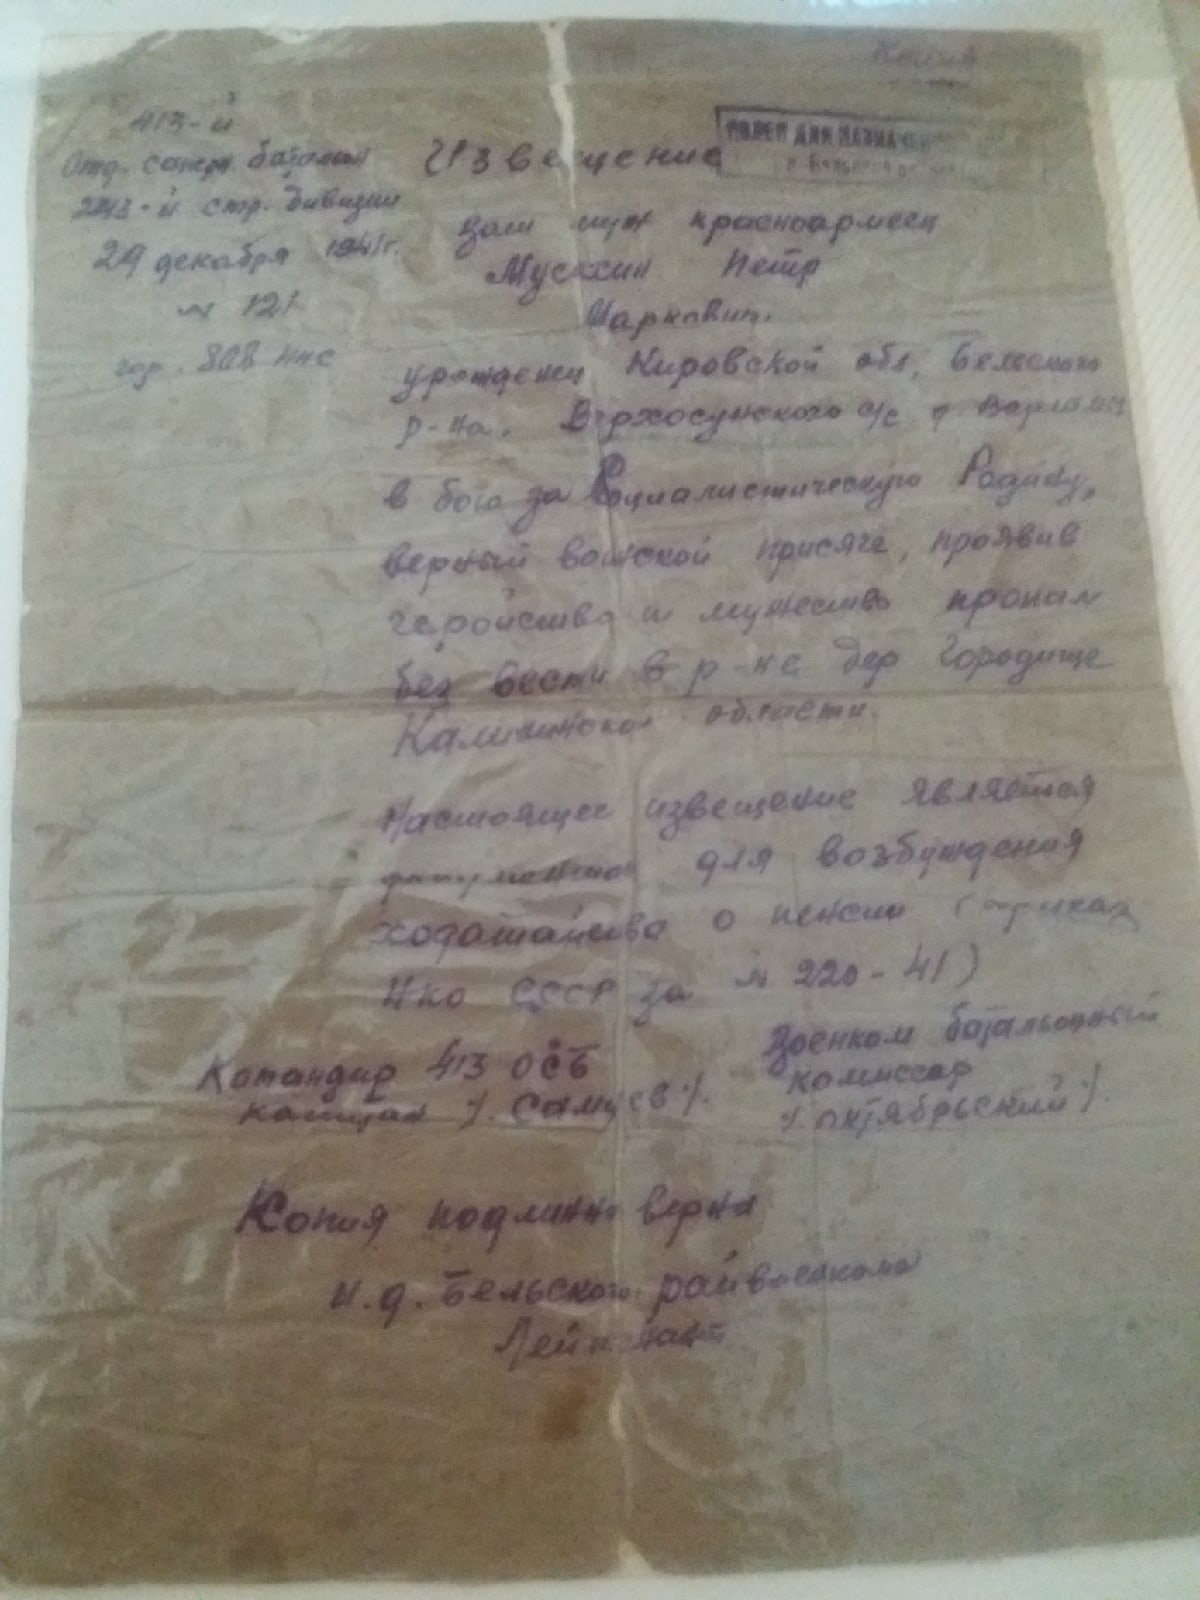 Копия
413-й
Отд. саперн. батальон
243-й стр. дивизии
29 декабря 1941 г.
№ 121
гор. 808 ппс
Извещение
ваш муж красноармеец
Петр
Маркович.
уроженец Кировской обл, Бельского
р-на, Верхосунского с/с д
в бою за Социалистическую Родину,
верный воинской присяге, проявив
геройства и мужество пропал
без вести в р-не дер Городище
Калининской области.
Настоящее извещение является
документом для возбуждения
ходатайства о пенсии (приказ
НКО СССР за № 220-41)
Командир 413 ОСБ
капитан /. /.
Военком батальонный
комиссар
/. октябрьский /.
Копия подлинно верна
и.д. Бельского райвоенкома
Лейтенант